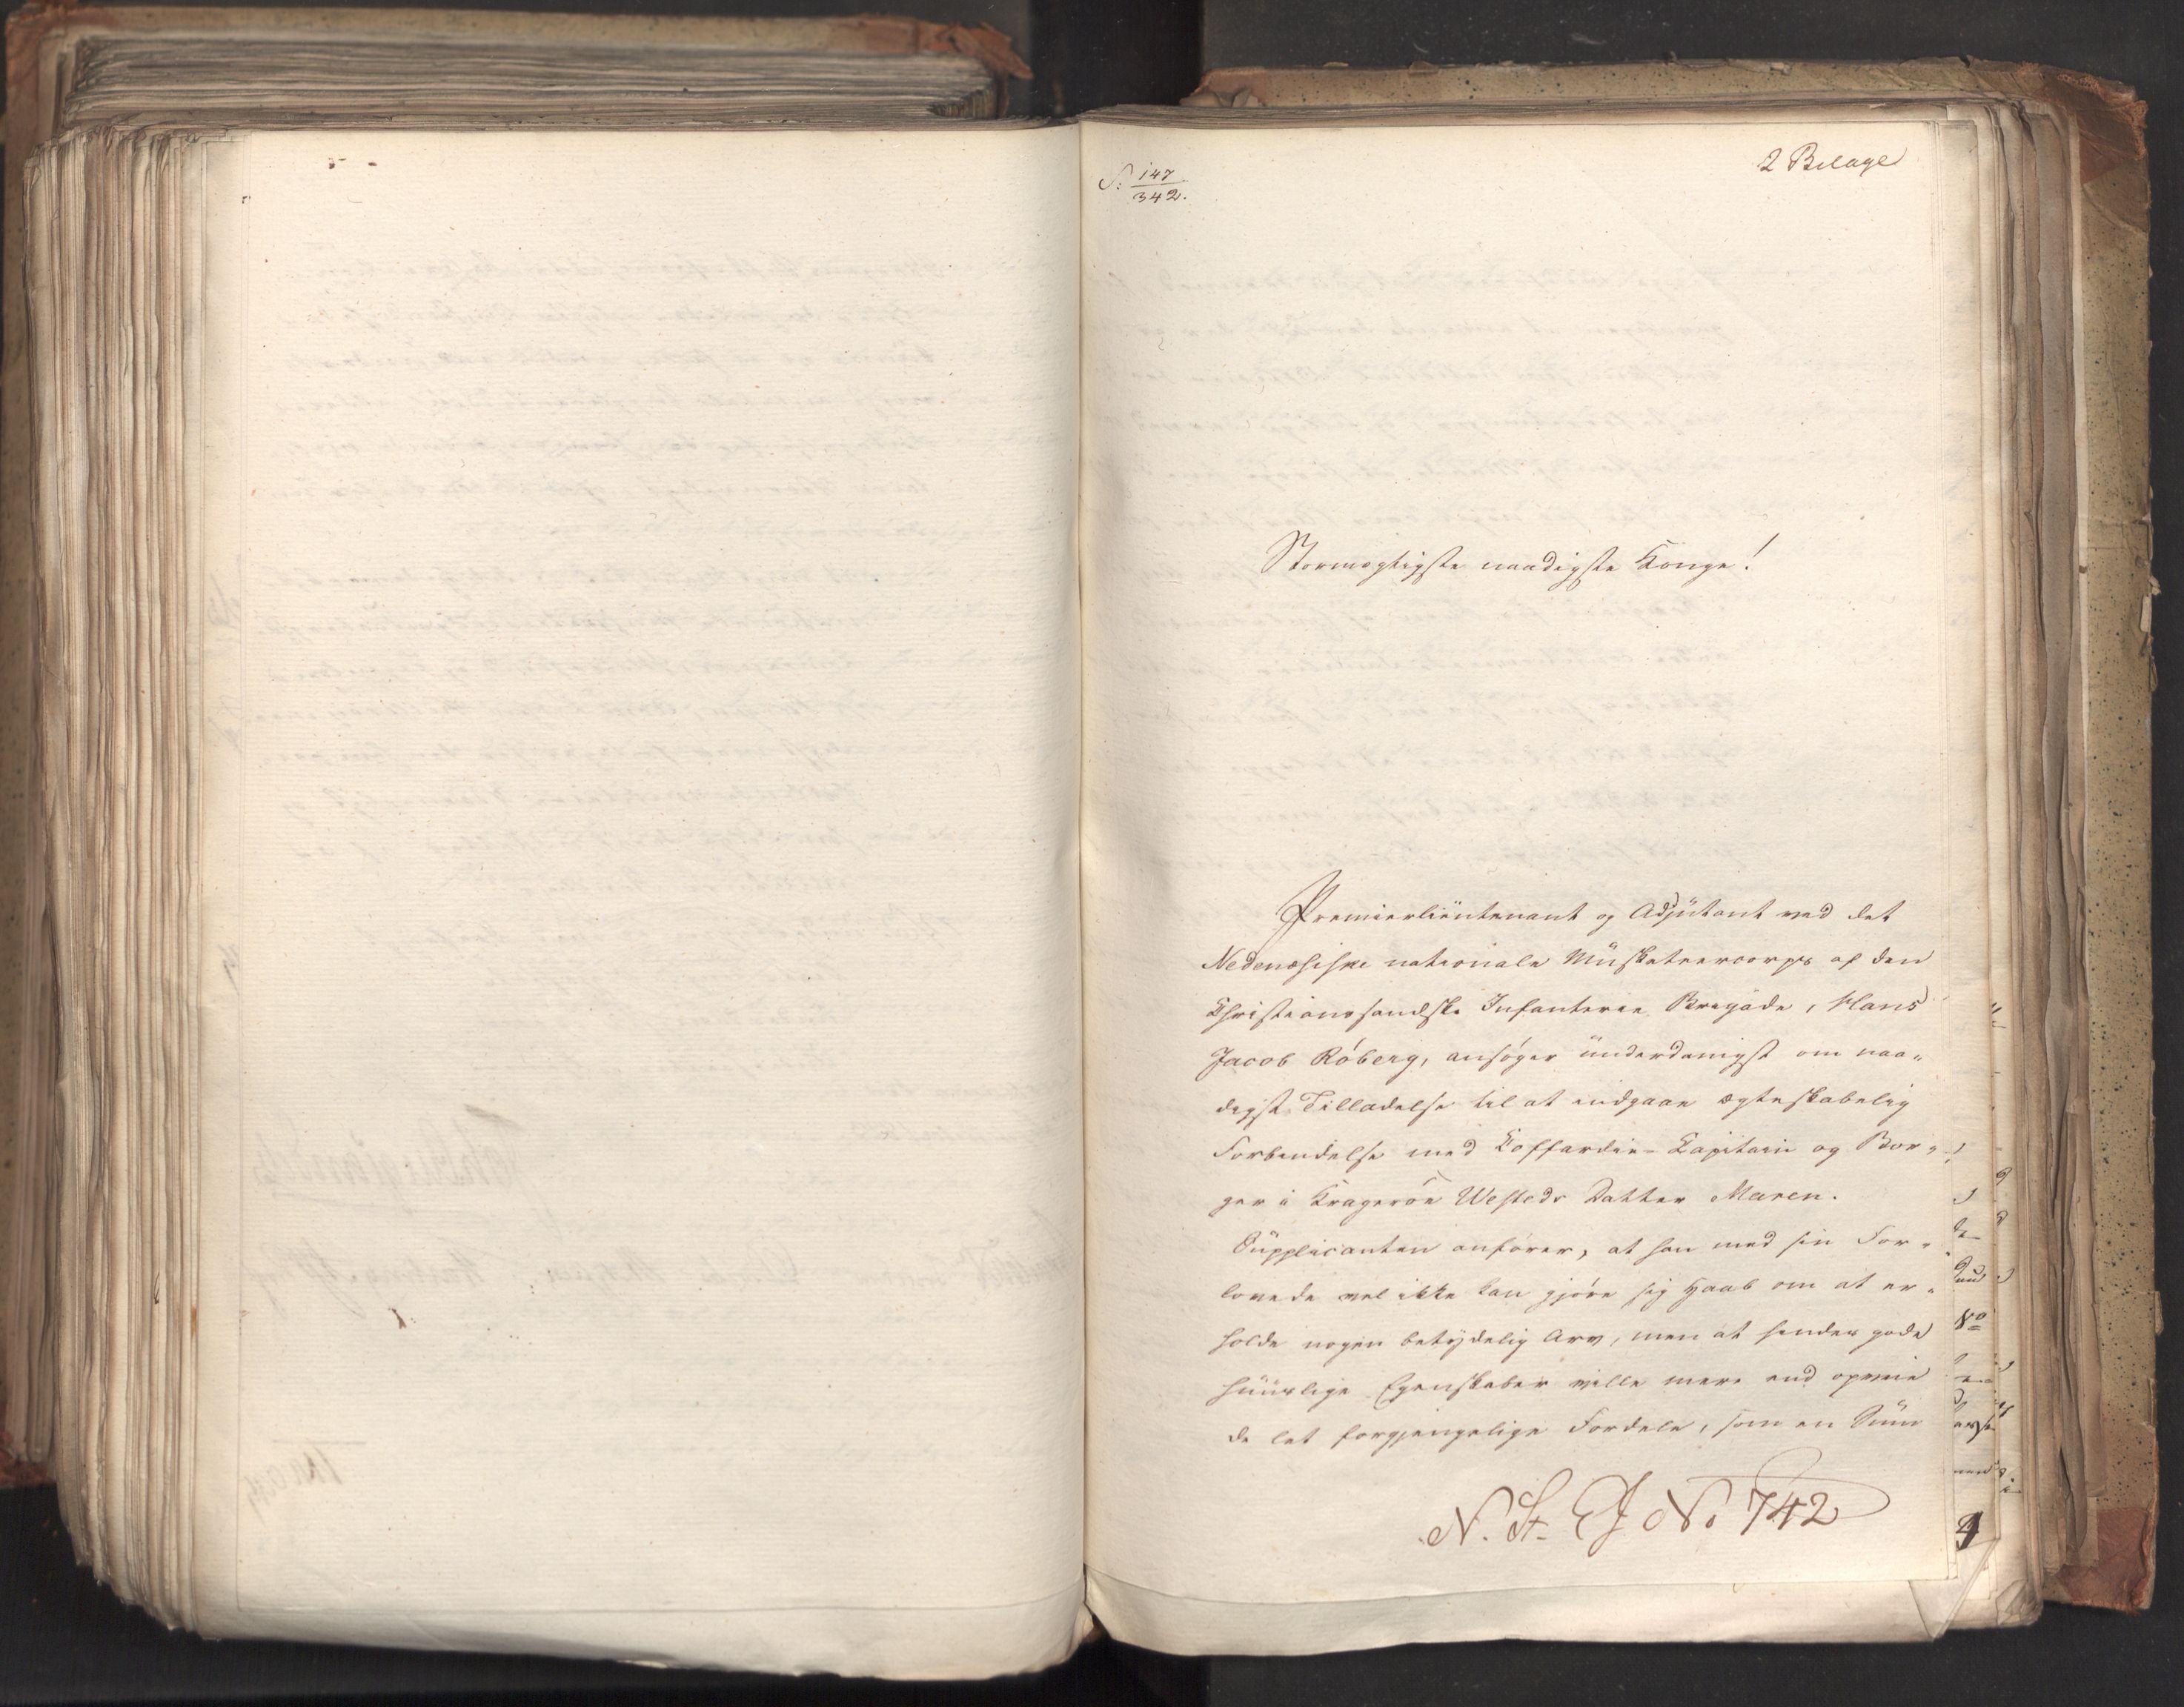 S: 147/342.
2 Bilage
Stormægtigste naadigste Konge!
Premierlieutenant og Adjutant ved det
Nedenæsiske nationale Musketeercorps af den
Christianssandske Infanterie Brigade, Hans
Jacob Röberg, ansöger underdanigst om naa-
digst Tilladelse til at indgaae ægteskabelig
Forbindelse med Koffardie-Capitain og Bor-
ger i Krageröe Westeds Datter Maren.
Supplicanten anförer, at han med sin For-
lovede vel ikke kan gjöre sig Haab om at er-
holde nogen betydelig Arv, men at hendes gode
huuslige Egenskaber ville mere end opveie
de let forgjængelige Fordele, som en Sum
N. St. J No 742